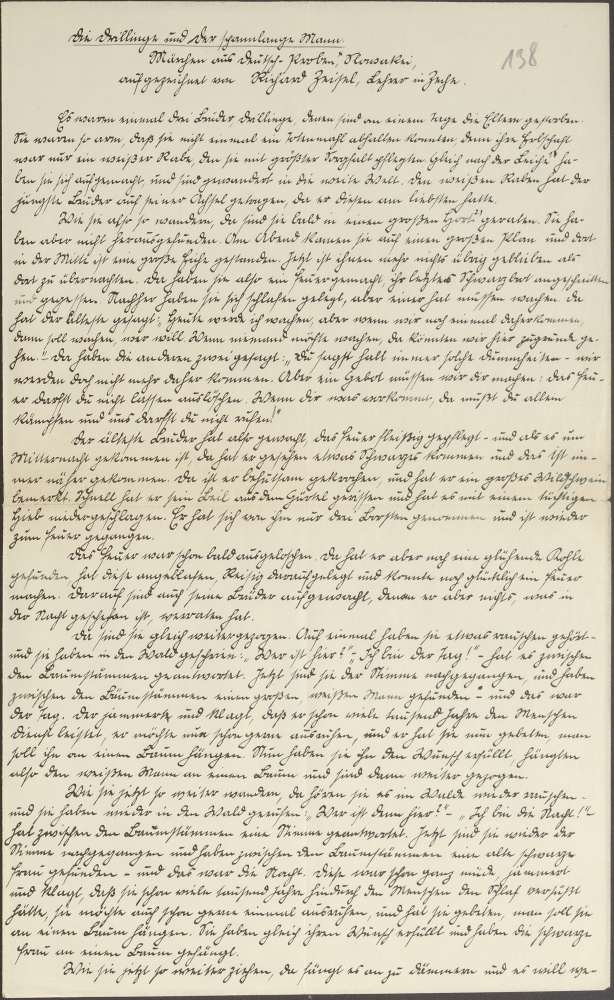 Die Drillinge und der spannlange Mann.
138
Märchen aus Deutsch-Proben, Slowakei,
aufgezeichnet von Richard Zeisel, Lehrer in Zeche.
Es waren einmal drei Brüder Drillinge, denen sind an einem Tage die Eltern gestorben.
Sie waren so arm, daß sie nicht einmal ein Totenmahl abhalten konnten, denn ihre Erbschaft
war nur ein weißer Rabe, den sie mit größter Sorgfalt pflegten. Gleich nach der Leiche ha-
ben sie sich aufgemacht, und sind gewandert in die weite Welt. Den weißen Raben hat der
jüngste Bruder auf seiner Achsel getragen, da er diesen am liebsten hatte.
Wie sie also so wandern, da sind sie bald in einen großen geraten. Sie ha-
ben aber nicht herausgefunden. Am Abend kamen sie auf einen großen Plan und dort
in der Mitte ist eine große Eiche gestanden. Jetzt ist ihnen mehr nichts übrig geblieben als
dort zu übernachten. Da haben sie also ein Feuer gemacht, ihr letztes Schwarzbrot angeschnitten
und gegessen. Nachher haben sie sich schlafen gelegt, aber einer hat müssen wachen. Da
hat der Älteste gesagt: „Heute werde ich wachen, aber wenn wir noch einmal daherkommen,
dann soll wachen, wer will. Wenn niemand möchte wachen, da könnten wir hier zugrunde ge-
hen." Da haben die anderen zwei gesagt: „Du sagst halt immer solche Dummheiten - wir
werden doch nicht mehr daher kommen. Aber ein Gebot müssen wir dir machen: das Feu-
er darfst du nicht lassen auslöschen. Wenn dir was vorkommt, da mußt du allein
kämpfen und uns darfst du nicht rufen!"
Der älteste Bruder hat also gewacht, das Feuer fleißig gepflegt - und als es um
Mitternacht gekommen ist, da hat er gesehen etwas Schwarzes kommen und das ist im-
mer näher gekommen. Da ist er behutsam gekrochen, und hat er ein großes Wildschwein
bemerkt. Schnell hat er sein Beil aus dem Gürtel gerissen und hat es mit einem tüchtigen
Hieb niedergeschlagen. Er hat sich von ihm nur drei Borsten genommen und ist wieder
zum Feuer gegangen.
Das Feuer war schon bald ausgeloschen. Da hat er aber noch eine glühende Kohle
gefunden, hat diese angeblasen, Reisig darauf gelegt und konnte noch glücklich ein Feuer
machen. Darauf sind auch seine Brüder aufgewacht, denen er aber nichts, was in
der Nacht geschehen ist, verraten hat.
Da sind sie gleich weitergezogen. Auf einmal haben sie etwas rauschen gehört -
und sie haben in den Wald geschrien: „Wer ist hier?" „Ich bin der Tag!" - hat es zwischen
den Baumstämmen geantwortet. Jetzt sind sie der Stimme nachgegangen, und haben
zwischen den Baumstämmen einen großen, weißen Mann gefunden - und das war
der Tag. Der jammerte und klagt, daß er schon viele tausend Jahre den Menschen
Dienst leistet, er möchte nun schon gerne ausruhen, und er hat sie nun gebeten, man
soll ihn an einen Baum hängen. Nun haben sie ihm den Wunsch erfüllt, hängten
also den weißen Mann an einen Baum und sind dann weiter gezogen.
Wie sie jetzt so weiter wandern, da hören sie es im Walde wieder rauschen -
und sie haben wieder in den Wald gerufen: „Wer ist denn hier?" - „Ich bin die Nacht!" -
hat zwischen den Baumstämmen eine Stimme geantwortet. Jetzt sind sie wieder der
Stimme nachgegangen und haben zwischen den Baumstämmen eine alte schwarze
Frau gefunden - und das war die Nacht. Diese war schon ganz müde, jammert
und klagt, daß sie schon viele tausend Jahre hindurch den Menschen den Schlaf versüßt
hätte, sie möchte auch schon gerne einmal ausruhen, und hat sie gebeten, man soll sie
an einen Baum hängen. Sie haben gleich ihren Wunsch erfüllt und haben die schwarze
Frau an einen Baum gehängt.
Wie sie jetzt so weiter ziehen, da fängt es an zu dämmern und es will we-